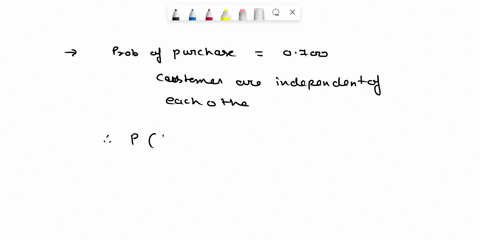 → Prob of purchase = 0.700
Customer are independent of
each othe
∴ P (